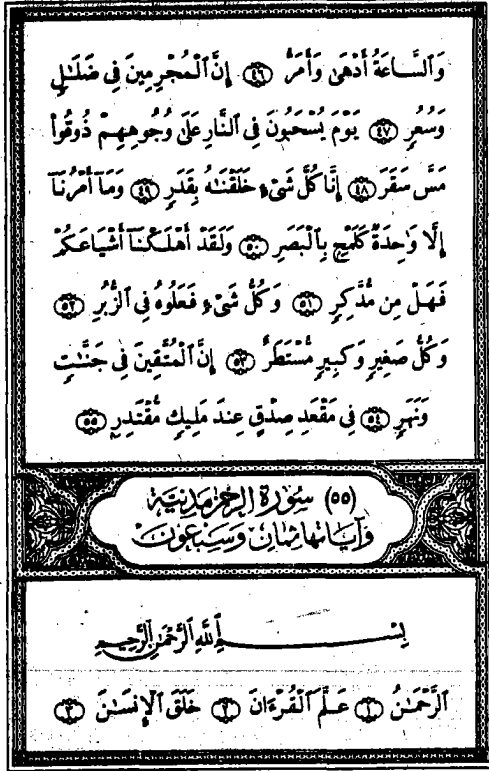 وَٱلسَّاعَةُ أَدْهَىٰ وَأَمَرُّ ﴿٤٦﴾ إِنَّ ٱلْمُجْرِمِينَ فِى ضَلَـٰلٍ
وَسُعُرٍ ﴿٤٧﴾ يَوْمَ يُسْحَبُونَ فِى ٱلنَّارِ عَلَىٰ وُجُوهِهِمْ ذُوقُوا۟
مَسَّ سَقَرَ ﴿٤٨﴾ إِنَّا كُلَّ شَىْءٍ خَلَقْنَـٰهُ بِقَدَرٍ ﴿٤٩﴾ وَمَآ أَمْرُنَآ
إِلَّا وَٰحِدَةٌ كَلَمْحٍۭ بِٱلْبَصَرِ ﴿٥٠﴾ وَلَقَدْ أَهْلَكْنَآ أَشْيَاعَكُمْ
فَهَلْ مِن مُّدَّكِرٍ ﴿٥١﴾ وَكُلُّ شَىْءٍ فَعَلُوهُ فِى ٱلزُّبُرِ ﴿٥٢﴾
وَكُلُّ صَغِيرٍ وَكَبِيرٍ مُّسْتَطَرٌ ﴿٥٣﴾ إِنَّ ٱلْمُتَّقِينَ فِى جَنَّـٰتٍ
وَنَهَرٍ ﴿٥٤﴾ فِى مَقْعَدِ صِدْقٍ عِندَ مَلِيكٍ مُّقْتَدِرٍۭ ﴿٥٥﴾
(٥٥) سُورَةُ الرَّحْمَن مَدَنِيَّة
وَآيَاتهَا ثَمَانٍ وَسَبْعُونَ
بِسْمِ ٱللَّهِ ٱلرَّحْمَـٰنِ ٱلرَّحِيمِ
ٱلرَّحْمَـٰنُ ﴿١﴾ عَلَّمَ ٱلْقُرْءَانَ ﴿٢﴾ خَلَقَ ٱلْإِنسَـٰنَ ﴿٣﴾